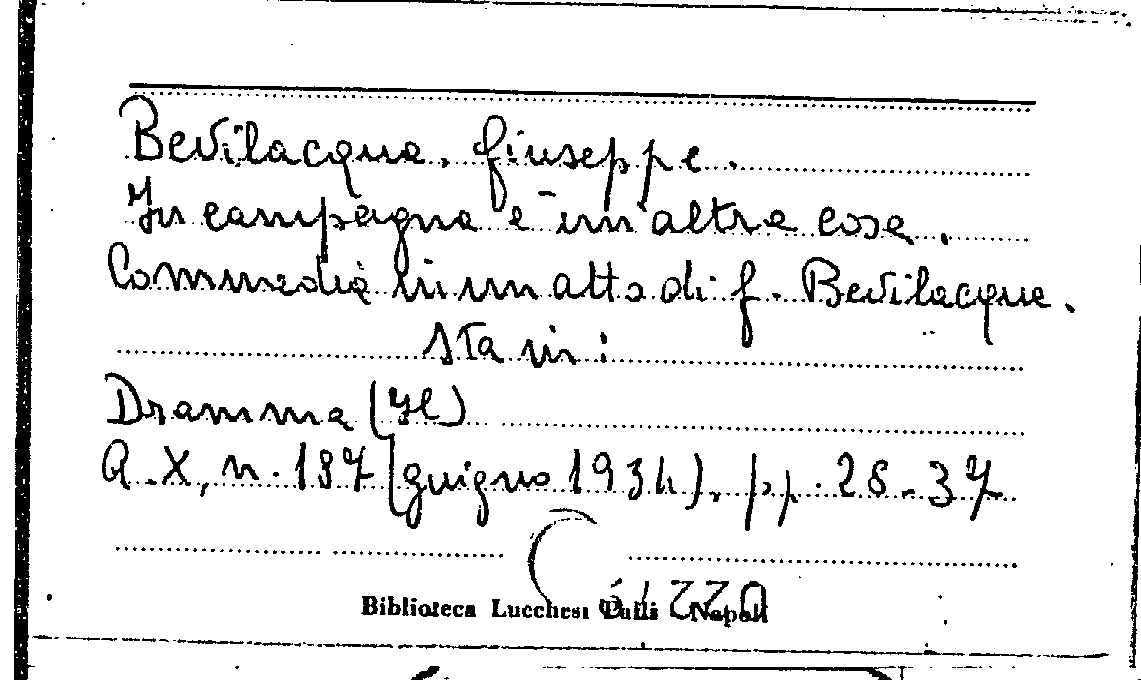 Bevilacqua, Giuseppe.
In campagna è un'altra cosa.
Commedia in un atto di G. Bevilacqua.
Sta in:
Dramma (Il)
A. X, n. 187 (giugno 1934), pp. 28-37
Biblioteca Lucchesi Palli Napoli